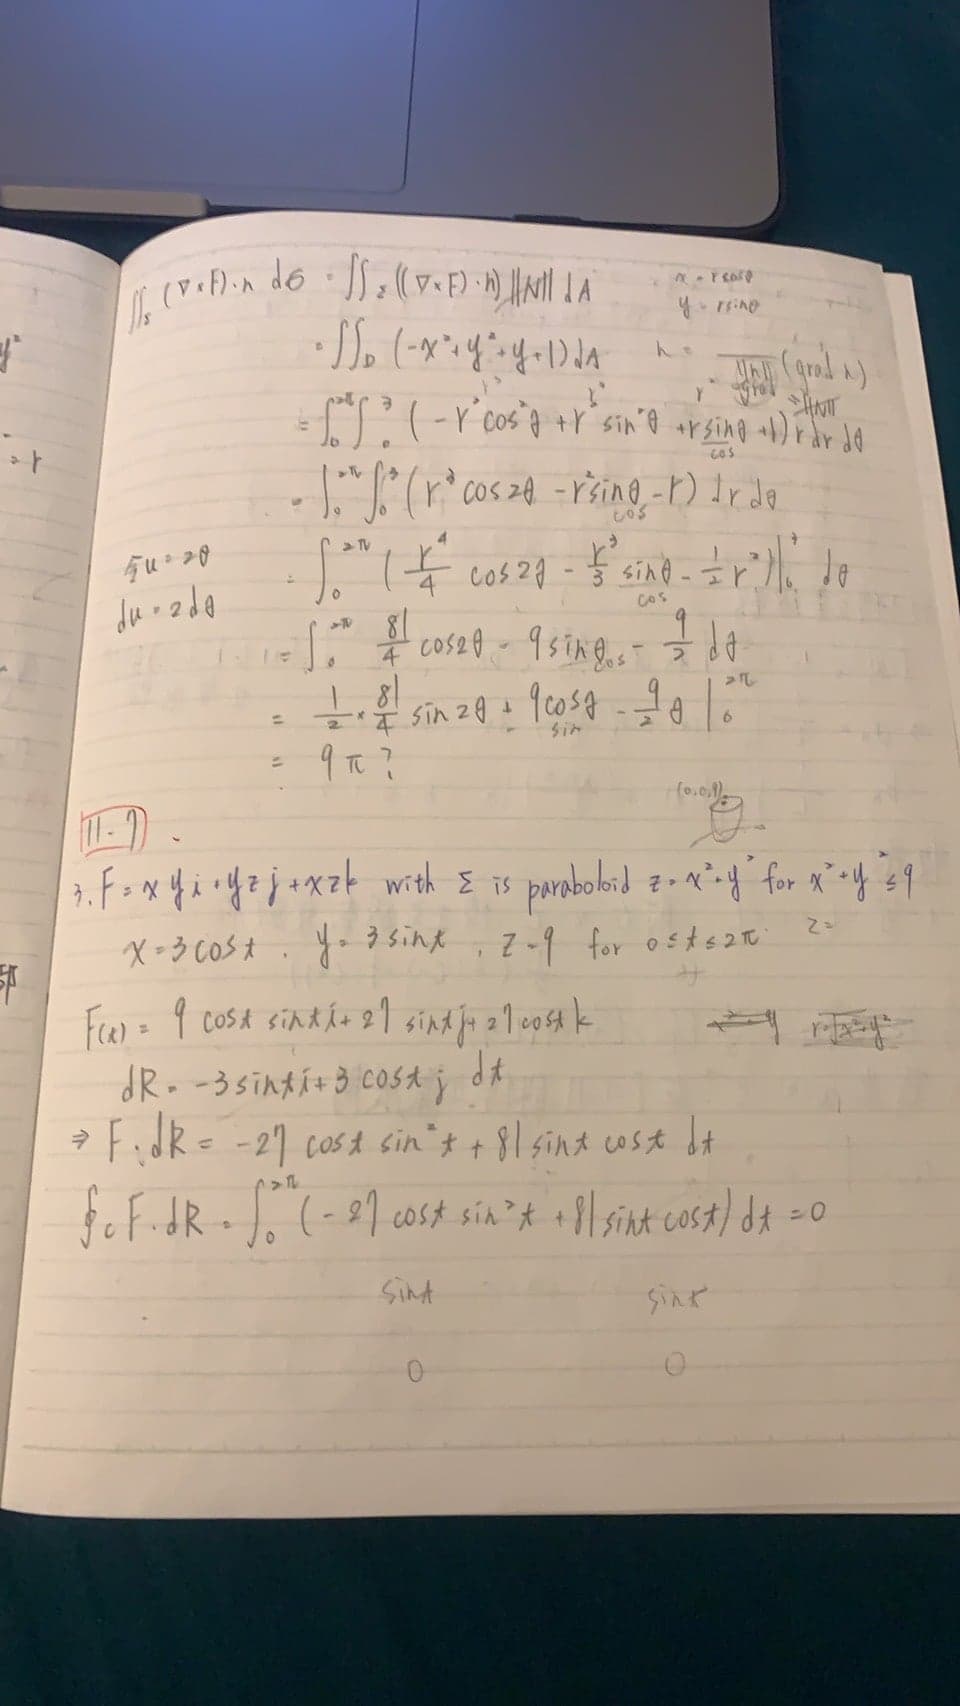 ∬ₛ (∇×F)·n dσ = ∬_Σ ((∇×F)·n) ||N|| dA
x = r cosθ
y = r sinθ
= ∬_D (-x²+y²+y+1) dA
n = (grad h)
= ∫₀^2π ∫₀³ (-r²cos²θ + r²sin²θ + r sinθ + 1) r dr dθ
cos
= ∫₀^2π ∫₀³ (r³ cos2θ - r²sinθ - r) dr dθ
cos
令u=2θ
du=2dθ
= ∫₀^2π (r⁴/4 cos2θ - r³/3 sinθ - 1/2 r²)|₀³ dθ
cos
= ∫₀^2π 81/4 cos2θ - 9sinθ - 9/2 dθ
cos
= 1/2 × 81/4 sin2θ + 9cosθ - 9/2 θ |₀^2π
sin
= 9π?
(0,0,9)
11-9
3. F = xyi + yzj + xzk with Σ is paraboloid z=x²+y² for x²+y²≤9
x=3cost, y=3sint, z=9 for 0≤t≤2π
z=
F(t) = 9 cost sint i + 27 sint j + 27 cost k
dR = -3sint i + 3 cost j dt
⇒ F·dR = -27 cost sin²t + 81 sint cost dt
∮c F·dR = ∫₀^2π (-27 cost sin²t + 81 sint cost) dt = 0
sint sint
0 0